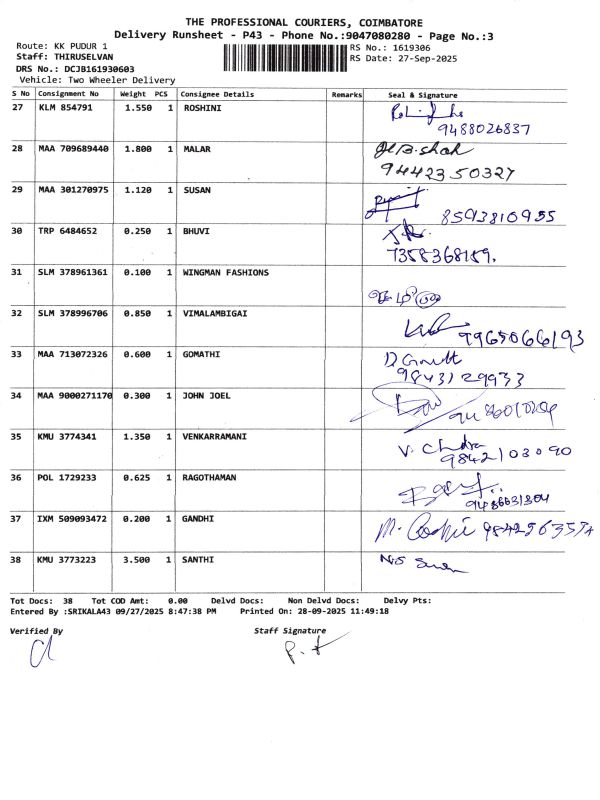 THE PROFESSIONAL COURIERS, COIMBATORE
Delivery Runsheet - P43 - Phone No.:9047080280 - Page No.:3
Route: KK PUDUR 1 RS No.: 1619306
Staff: THIRUSELVAN RS Date: 27-Sep-2025
DRS No.: DCJB161930603
Vehicle: Two Wheeler Delivery
S No Consignment No Weight PCS Consignee Details Remarks Seal & Signature
27 KLM 854791 1.550 1 ROSHINI
9488026837
28 MAA 709689440 1.800 1 MALAR B.Shah
9442350327
29 MAA 301270975 1.120 1 SUSAN
8593810955
30 TRP 6484652 0.250 1 BHUVI
7358368159.
31 SLM 378961361 0.100 1 WINGMAN FASHIONS
32 SLM 378996706 0.850 1 VIMALAMBIGAI
9965066193
33 MAA 713072326 0.600 1 GOMATHI
9843129933
34 MAA 9000271170 0.300 1 JOHN JOEL
35 KMU 3774341 1.350 1 VENKARRAMANI V.
9842103090
36 POL 1729233 0.625 1 RAGOTHAMAN
37 IXM 509093472 0.200 1 GANDHI M.
38 KMU 3773223 3.500 1 SANTHI
Tot Docs: 38 Tot COD Amt: 0.00 Delvd Docs: Non Delvd Docs: Delvy Pts:
Entered By :SRIKALA43 09/27/2025 8:47:38 PM Printed On: 28-09-2025 11:49:18
Verified By Staff Signature